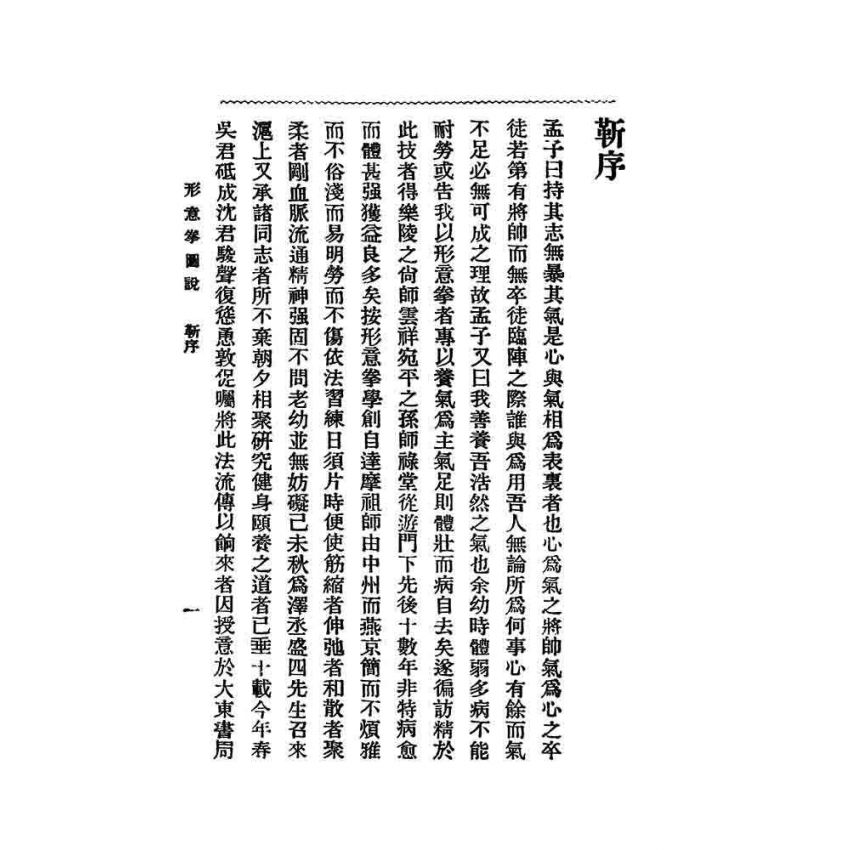 靳序
孟子曰持其志無暴其氣是心與氣相爲表裏者也心爲氣之將帥氣爲心之卒
徒若第有將帥而無卒徒臨陣之際誰與爲用吾人無論所爲何事心有餘而氣
不足必無可成之理故孟子又曰我善養吾浩然之氣也余幼時體弱多病不能
耐勞或告我以形意拳者專以養氣爲主氣足則體壯而病自去矣遂徧訪精於
此技者得樂陵之尙師雲祥宛平之孫師祿堂從遊門下先後十數年非特病愈
而體甚强獲益良多矣按形意拳學創自達摩祖師由中州而燕京簡而不煩雅
而不俗淺而易明勞而不傷依法習練日須片時便使筋縮者伸弛者和散者聚
柔者剛血脈流通精神强固不問老幼並無妨礙己未秋爲澤丞盛四先生召來
滬上又承諸同志者所不棄朝夕相聚硏究健身頤養之道者已垂十載今年春
吳君砥成沈君駿聲復慫恿敦促囑將此法流傳以餉來者因授意於大東書局
形意拳圖說 靳序 一